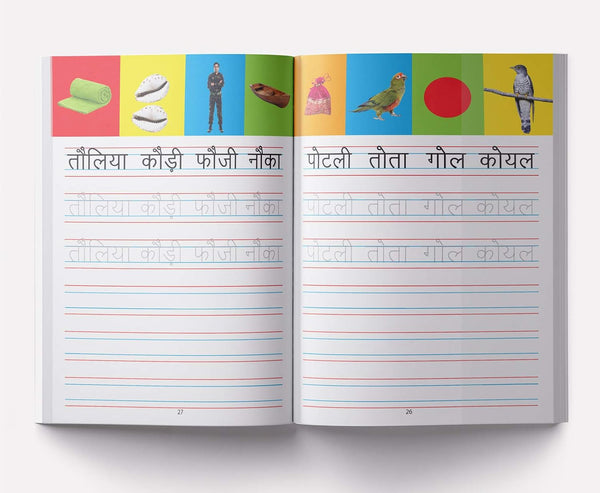 तौलिया कौड़ी फौजी नौका
तौलिया कौड़ी फौजी नौका
तौलिया कौड़ी फौजी नौका
27
पोटली तोता गोल कोयल
पोटली तोता गोल कोयल
पोटली तोता गोल कोयल
26